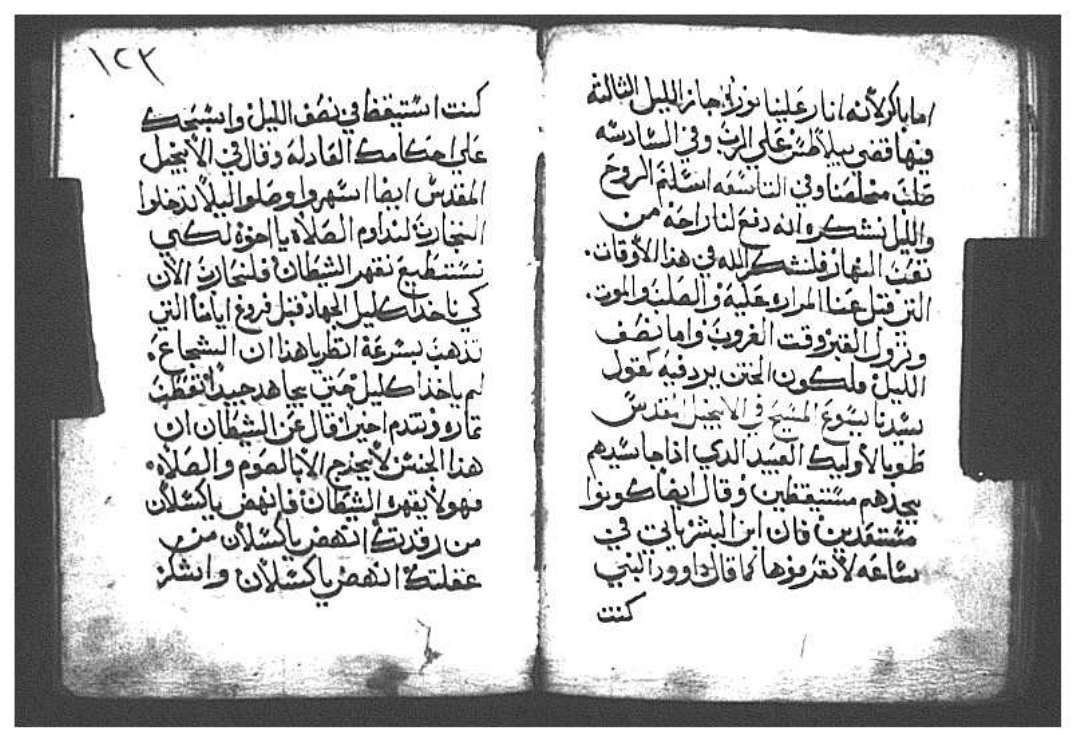 اما باكر لأنه انار علينا نوراً وجاز الليل الثالثة
فيها قضى بيلاطس على الرب وفي السادسه
صلب مخلصنا وفي التاسعه اسلم الروح
والليل نشكره انه دفع لنا راحه من
تعب النهار فلنشكر الله في هذا الأوقات.
التي قبل عنا المراره عليه والصلب والموت.
ونزول القبر وقت الغروب واما نصف
الليل فلكون الختن يرد فيه كقول
سيدنا يسوع المسيح في الانجيل المقدس
طوبا لأوليك العبيد الدي اذا جا سيدهم
يجدهم مستيقظين وقال ايضا كونوا
مستعدين فان ابن البشر ياتي في
ساعه لا تعرفوها كما قال داوود النبي
كنت
١٢٣
كنت استيقظ في نصف الليل واسبحك
على احكامك العادله وقال في الأنجيل
المقدس ايضا اسهروا وصلوا ليلا تدخلوا
التجارب لنداوم الصلاه يا اخوة لكي
نستطيع نقهر الشيطان فلنحارب الأن
كي ناخذ اكليل الجهاد قبل فروغ ايامنا التي
تذهب بسرعة انظر يا هذا ان الشجاع.
لم ياخذ اكليل حتى يجاهد جيداً
تماره وتندم اخيراً قال عن الشيطان ان
هذا الجنس لا يخرج الا بالصوم والصلاه.
فهولا يقهرن الشيطان فانهض يا كسلان
من رقدتك انهض يا كسلان من
غفلتك انهض يا كسلان وانشكر